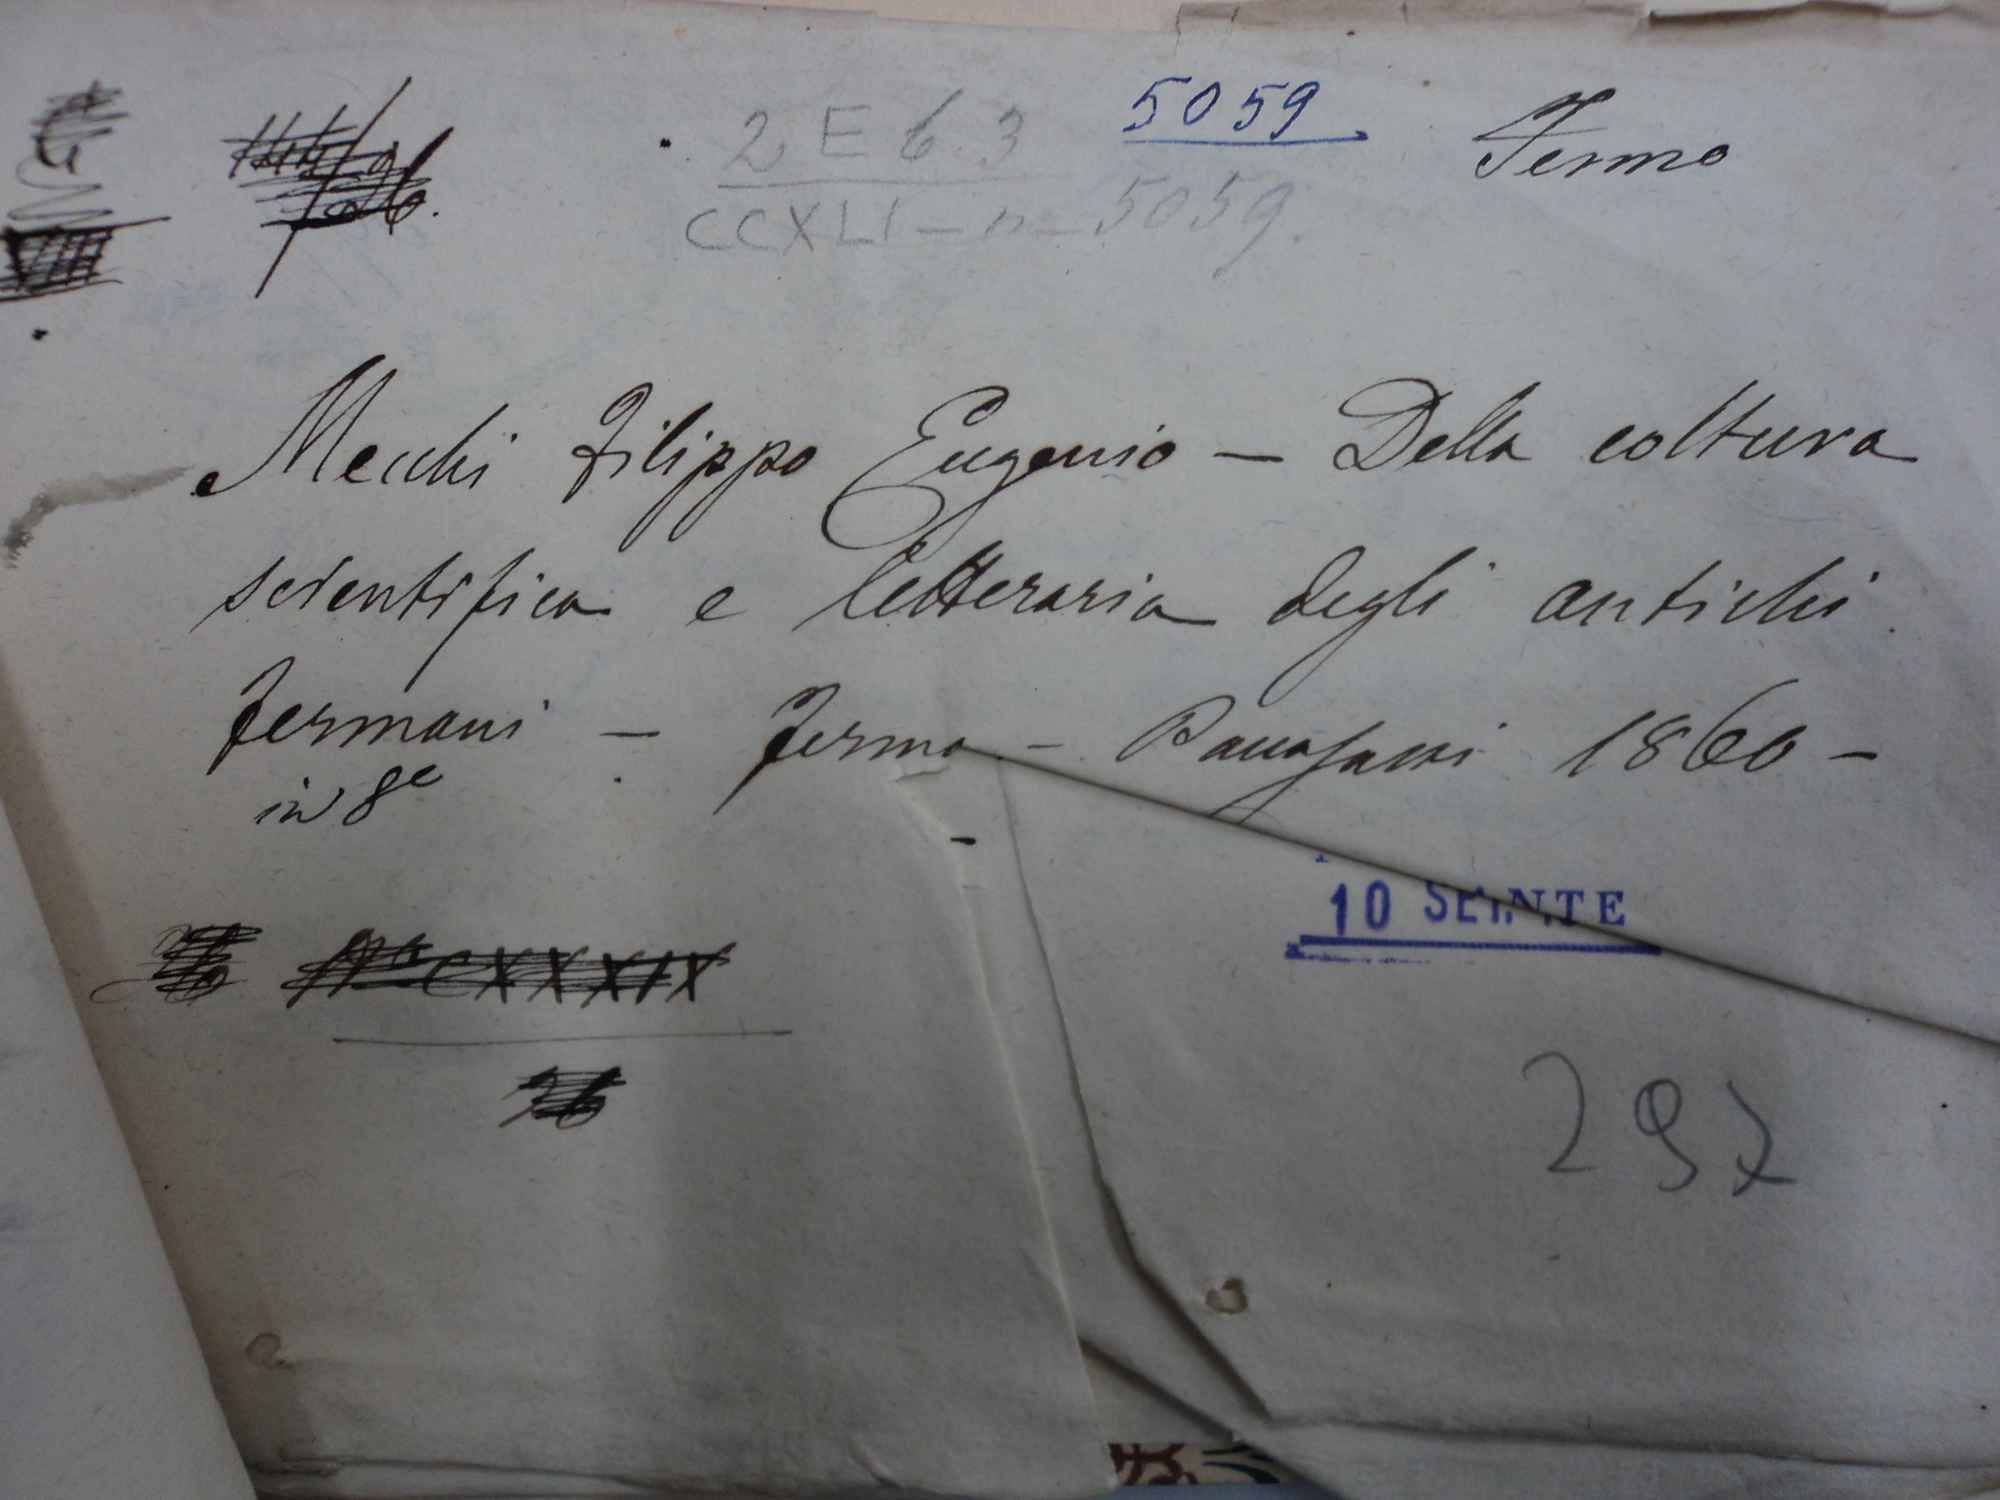 2 E 6.3
5059
Fermo
CCXLI - n - 5059.
Mecchi Filippo Eugenio - Della coltura
scientifica e letteraria degli antichi
fermani - Fermo - Paccasassi 1860 -
in 8°
10
CXXXIX
297